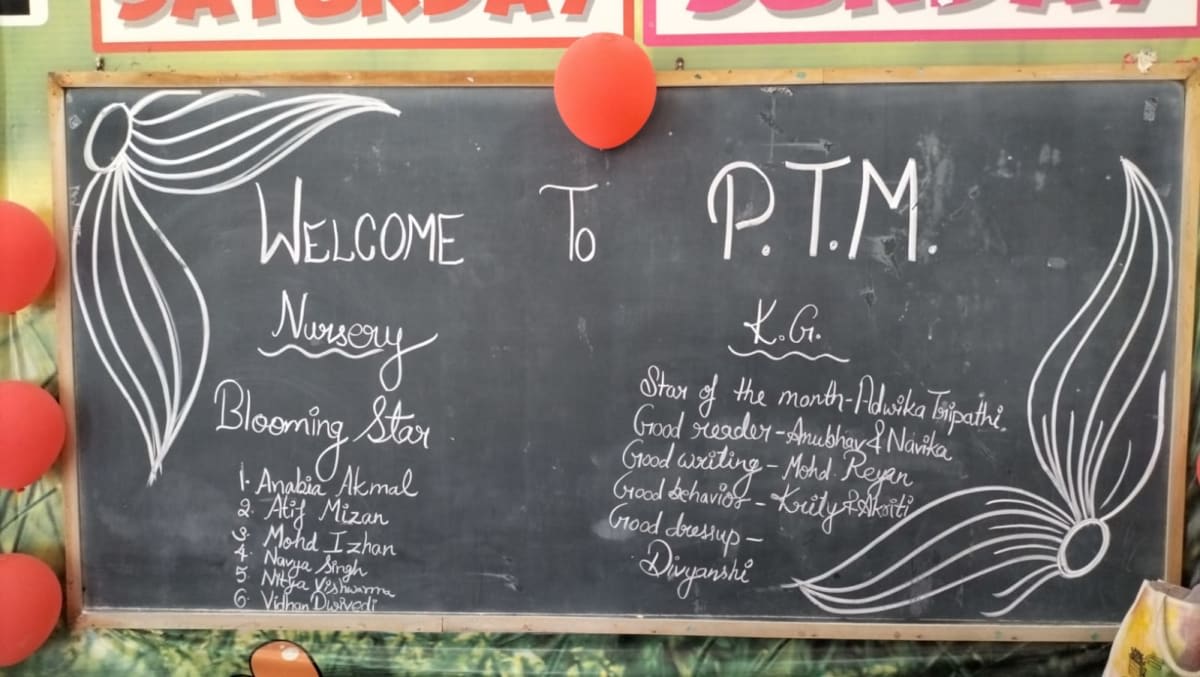 SATURDAY
SUNDAY
WELCOME TO P.T.M.
Nursery
Blooming Star
1. Anabia Akmal
2. Atif Mizan
3. Mohd Izhan
4. Navya Singh
5. Nitya Vishwarma
6. Vidhan Dwivedi
K.G.
Star of the month-Adwika Tripathi.
Good reader-Anubhav & Navika
Good writing - Mohd. Reyan
Good behavior - Krily & Akriti
Good dressup -
Divyanshi